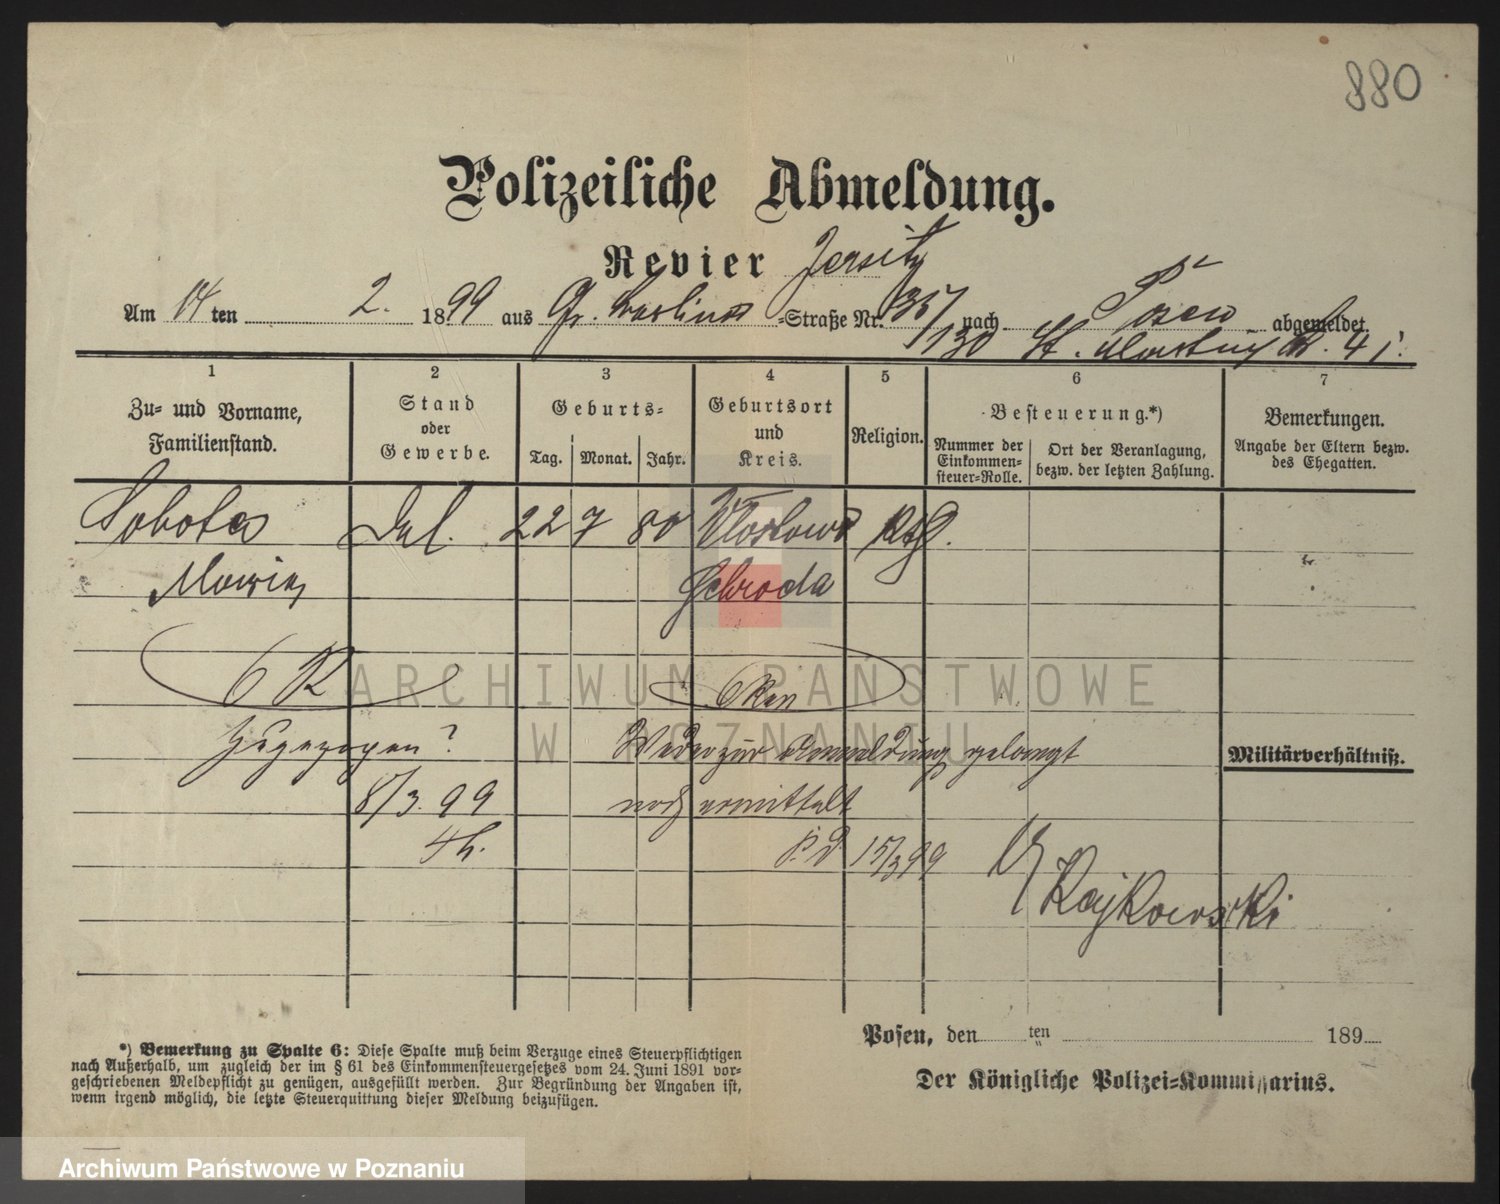 880
Polizeiliche Abmeldung.
Revier Jersitz
Am 14 ten 2. 1899 aus Gr. Berliner -Straße Nr. 35/ nach Posen abgemeldet.
130 St. Martin 41.
1 2 3 4 5 6 7
Zu- und Vorname, Familienstand.
Stand oder Gewerbe.
Geburts-
Tag. Monat. Jahr.
Geburtsort und Kreis.
Religion.
Besteuerung.*)
Nummer der Einkommen-steuer-Rolle.
Ort der Veranlagung, bezw. der letzten Zahlung.
Bemerkungen.
Angabe der Eltern bezw. des Ehegatten.
Sobota 22 7 80
Schroda
6 R
Zugezogen? Weder zur Anmeldung gelangt
Militärverhältniß.
8/3. 99 noch ermittelt
15/3 99
Rajkowski
Posen, den ten 189
Der Königliche Polizei-Kommissarius.
*) Bemerkung zu Spalte 6: Diese Spalte muß beim Verzuge eines Steuerpflichtigen
nach Außerhalb, um zugleich der im § 61 des Einkommensteuergesetzes vom 24. Juni 1891 vor-
geschriebenen Meldepflicht zu genügen, ausgefüllt werden. Zur Begründung der Angaben ist,
wenn irgend möglich, die letzte Steuerquittung dieser Meldung beizufügen.
ARCHIWUM PAŃSTWOWE
W POZNANIU
Archiwum Państwowe w Poznaniu